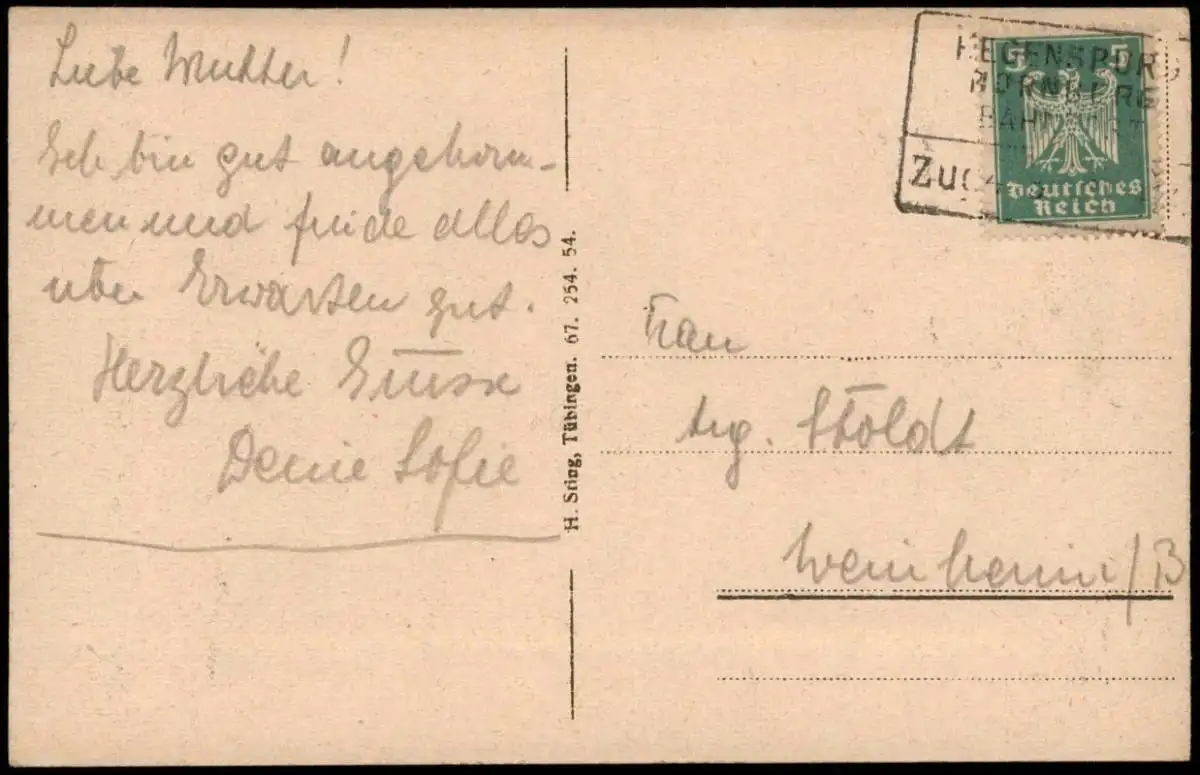 Liebe Mutter!
Ich bin gut angekom-
men und finde alles
über Erwarten gut.
Herzliche Grüsse
Deine Sofie
H. Sting, Tübingen. 67. 254. 54.
5 5
Deutsches
Reich
BAHNPOST
Zug
Frau
Aug. Stoldt
Weinheim/B